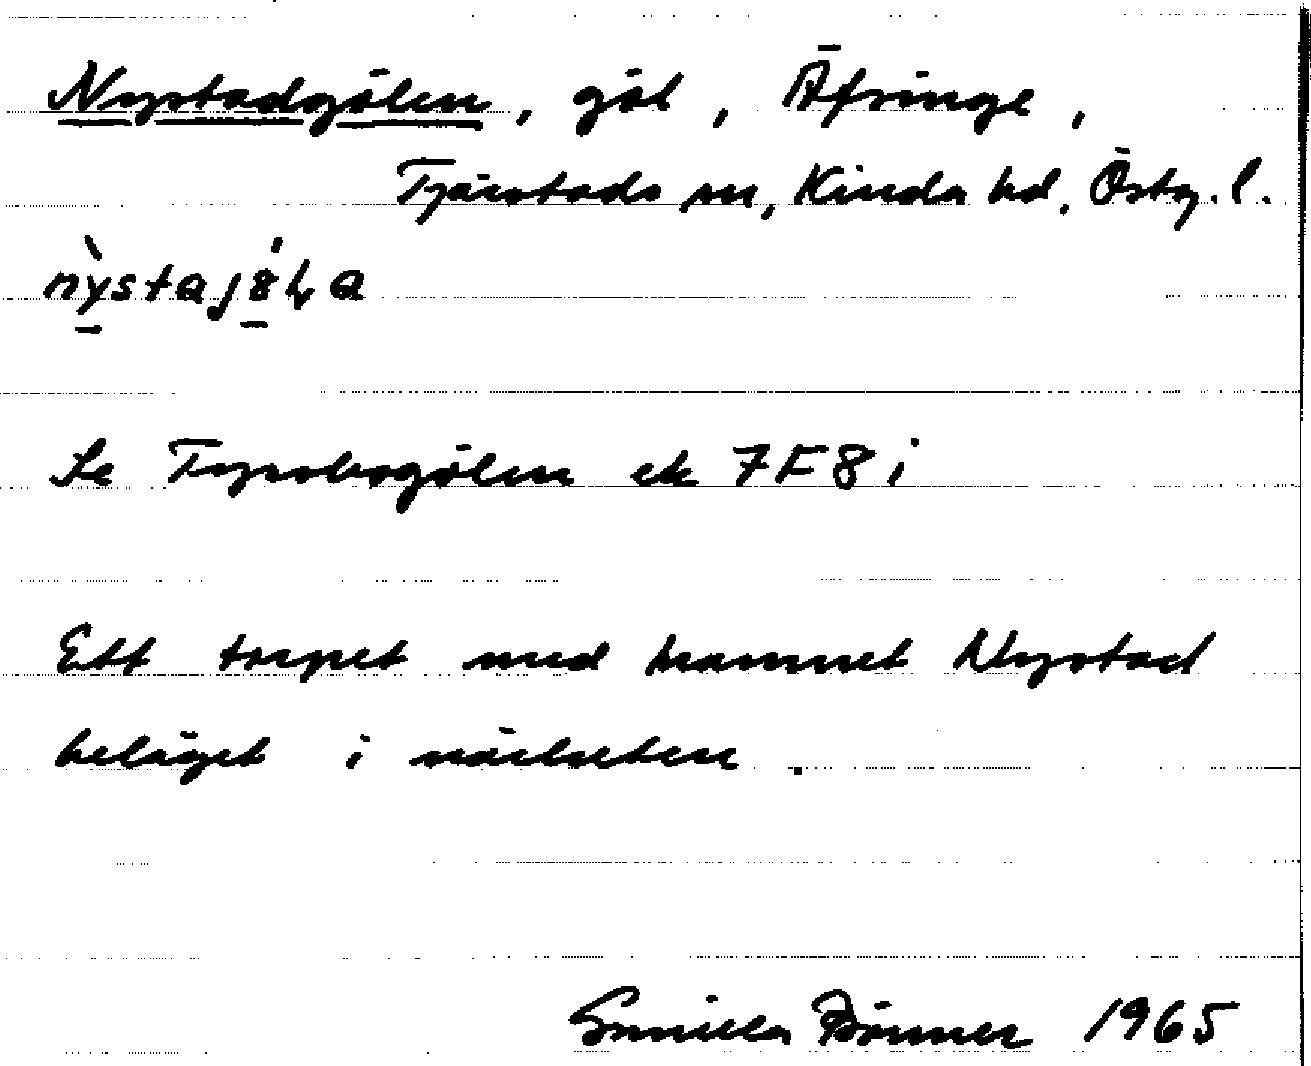 Nystadgölen, göl, Äfvinge,
Tjärstads sn, Kinda hd, Östg. l.
Se Tyrsbogölen ek 7F8i
Ett torpet med namnet Nystad
beläget i närheten.
Gunilla 1965